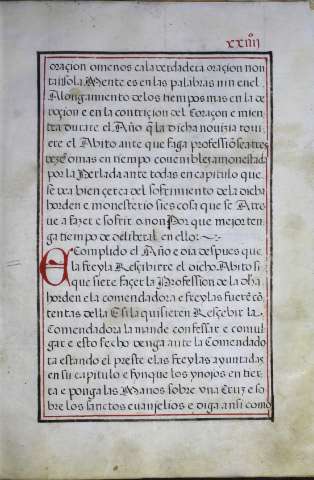 xxiiij
oraçion omenos ca la verdadera oraçion non
tansola Mente es en las palabras nin en el
Alongamiento de los tiempos mas en la de
voçion e en la contriçion del Coraçon e mien
tra durare el Año q̃ la dicha novizia tovi
ere el Abito ante que faga professiõ sea tres
vezes omas en tiempo covenible amonestada
por la Perlada ante todas en capitulo que
se vea bien çerca del sofrimiento de la dicha
horden e monesterio si es cosa que se Atre
ve a fazer e sofrir o non Por que mejor ten
ga tiempo de deliberar en ello:~
Complido el Año e dia despues que
la freyla Resçibiere el dicho Abito si
que siere fazer la Profession de la dha
horden e la comendadora e freylas fuerẽ cõ
tentas della E si la quisieren Resçebir la
Comendadora la mande confessar e comul
gar e esto fecho venga ante la Comendado
ra estando el preste e las freylas ayuntadas
en su capitulo e fynque los ynojos en tier
ra e ponga las Manos sobre vna Cruz e so
bre los sanctos evanjelios e diga ansi como